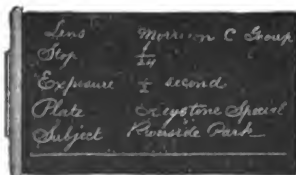 Lens Morrison C Group
Stop f/24
Exposure ½ second
Plate Keystone Special
Subject Riverside Park